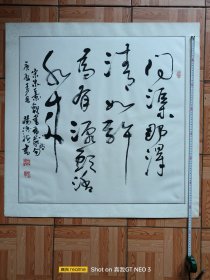 问渠那得
清如许
为有源头活
水来
宋朱熹观书有感句
Shot on 真我GT NEO 3